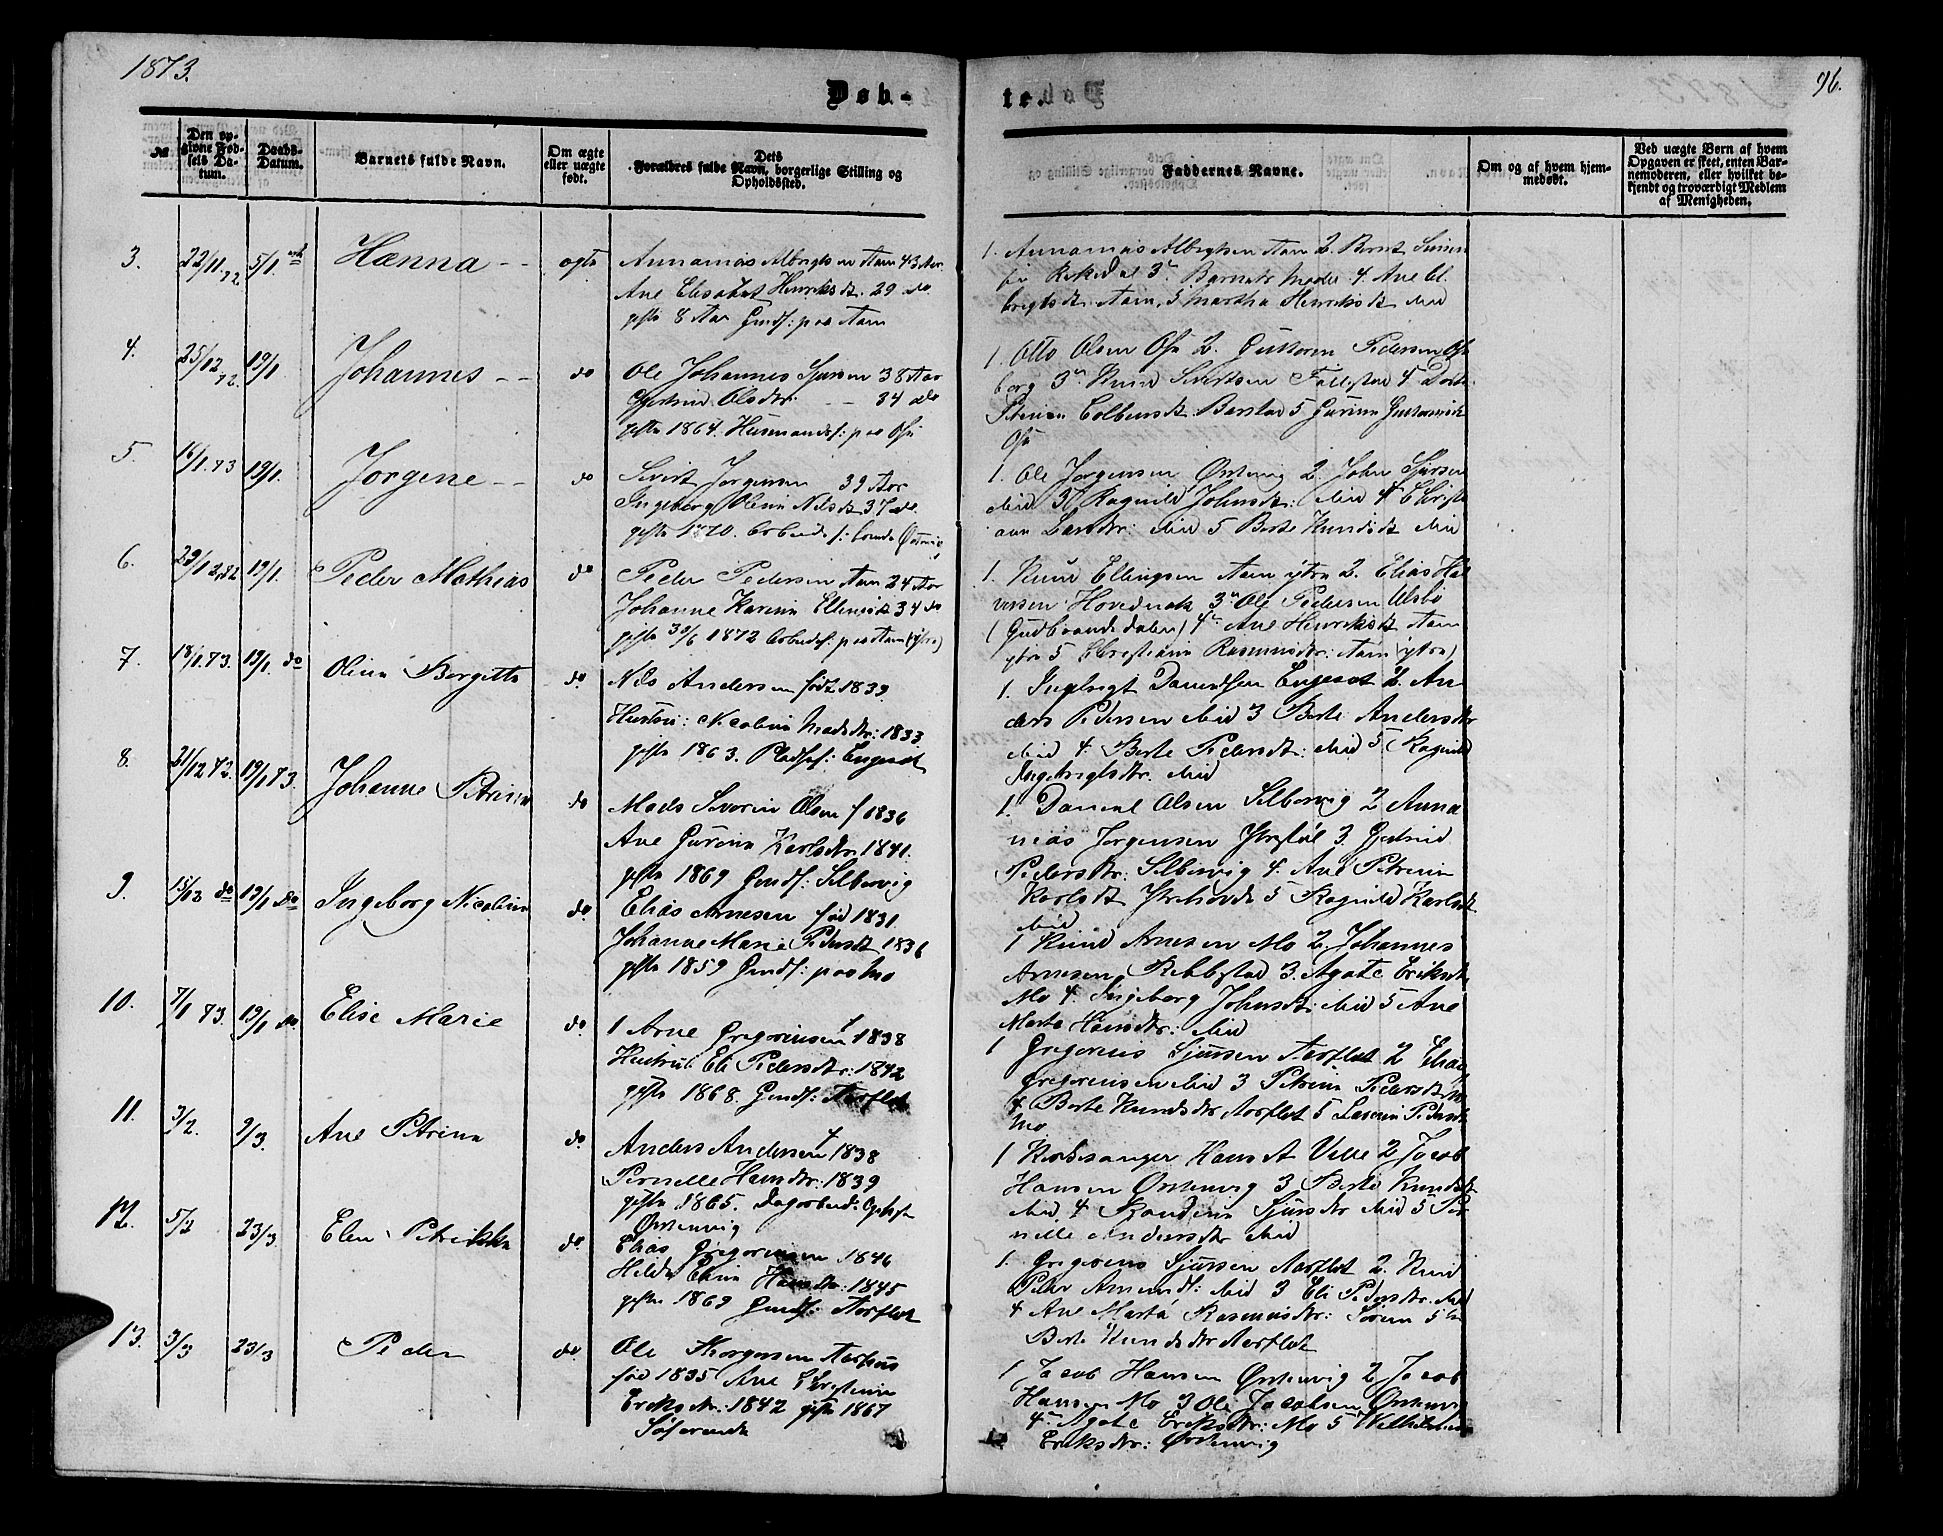 1873.
96.
Døb-
te.
№
Den op-
givne Fød-
sels Da-
tum.
Daabs-
Datum.
Barnets fulde Navn.
Om ægte
eller uægte
født.
Dets
Forældres fulde Navn, borgerlige Stilling og
Opholdssted.
Faddernes Navne.
Om og af hvem hjem-
medøbt.
Ved uægte Børn af hvem
Opgaven er skeet, enten Bar-
nemoderen, eller hvilket be-
kjendt og troværdigt Medlem
af Menigheden.
3.
22/11 72
5/1
Hanna
ægte
Annanias Albrigtsen Aam 43 Aar
Ane Elisabet Henriksdt. 29 do
gifte 8 Aar Gmdf: paa Aam
1. Annanias Albrigtsen Aam 2. Bernt
3 Barnets Moder 4. Ane El-
brigtsdt. Aam, 5 Martha Henriksdt ibid
4.
25/12 72
19/1
Johannes
do
Ole Johannes Sjursen 38 Aar
Gjertrud Olsdtr. 34 do
gifte 1864. Husmandsf: paa Osn
1. Otto Olsen Osn 2. Guttorm Pedersen
berg 3 Knud Sivertsen 4
Barstad 5
Osn
5.
16/1 73
19/1
Jørgene
do
Sivert Jørgensen 39 Aar
Ingeborg Oline Nilsdt 37 do
gifte 1870.
1. Ole Jørgensen Ørstenvig 2. John Sjursen
ibid 3. Ragnild Johnsdt: ibid 4
ibid 5 Berte Knudsdt ibid
6.
29/12 72
19/1
Peder Mathias
do
Peder Pedersen Aam 24 Aar
Johanne Karine Ellingsdt 34 do
gifte 30/6 1872 Arbeidsf: paa Aam (ytre)
1. Knud Ellingsen Aam ytre 2. Elias Hal-
vorsen Hovednak 3 Ole Pedersen Ulsbø
(Gudbrandsdalen) 4 Ane Henriksdt Aam
ytre 5 Christiane Rasmusdtr: Aam (ytre)
7.
18/1 73.
19/1 do
Oline Bergitte
do
Nils Andersen født 1839
Hustru: Nicoline Madsdtr: 1833
gifte 1863. Pladsf: Engeset
1. Ingebrigt Danielsen Engeset 2. An-
ders Pedersen ibid 3 Berte Andersdtr
ibid 4. Berte Pedersdt: ibid 5 Ragnild
Ingebrigtsdtr. ibid
8.
31/12 72.
19/1 73.
Johanne Petrine
do
Mads Severin Olsen f 1836
Ane Gurine Karlsdtr. 1841.
gifte 1869 Gmdf: Selbervig
1. Daniel Olsen Selbervig 2 Anna-
nias Jørgensen 3. Gjertrud
Pedersdtr: Selbervig 4. Ane Petrine
Karlsdt 5 Ragnild Karlsdt
ibid
9.
do
19/1 do
Ingeborg Nicoline
do
Elias Arnesen fød 1831.
Johanne Marie Pedersdt 1836
gifte 1859 Gmdf: paa Mo
1 Knud Arnesen Mo 2. Johannes
Arnesen Rebbestad 3. Agate Eriksdt
Mo 4. Ingeborg Johnsdt: ibid 5 Ane
Marta Hansdtr: ibid
10.
7/1 73.
19/1 do
Elise Marie
do
1 Arne Gregoriusen f 1838
Hustru: Eli Pedersdtr: 1842
gifte 1868. Gmdf: Aarflot
1 Gregorius Sjursen Aarflot 2 Elias
Gregoriusen ibid 3 Petrine Pedersdt
4 Berte Knudsdtr Aarflot 5 Pedersdt
Mo
11.
3/2.
2/3.
Ane Petrine
do
Anders Andersen f 1838
Pernille Hansdtr: 1839
gifte 1865. Dagarbeid: Opholdst
Ørstenvig
1 Kirkesanger Hans A Velle 2 Jacob
Hansen Ørstenvig 3 Berte Knudsdt
ibid 4 Sjursdtr ibid 5 Per-
nille Andersdtr ibid
12.
5/2
23/3.
Elen Petrikke
do
Elias Gregoriusen 1846
Hilde Eline Hansdtr: 1845
gifte 1869 Gmdf: Aarflot
1. Gregorius Sjursen Aarflot 2. Knud
Peder ibid 3 Eli Pedersdtr. ibid
4 Ane Marta Rasmusdtr: 5
Berte Knudsdtr Aarflot
13.
3/3
23/3
Peder
do
Ole
fød 1835 Ane Christine
Eriksdtr: 1842 gifte 1867
1 Jacob Hansen Ørstenvig 2 Jacob
Hansen Mo 3 Ole Jacobsen Ørstenvig
4 Agate Eriksdtr: Mo 5
Eriksdtr: Ørstenvig